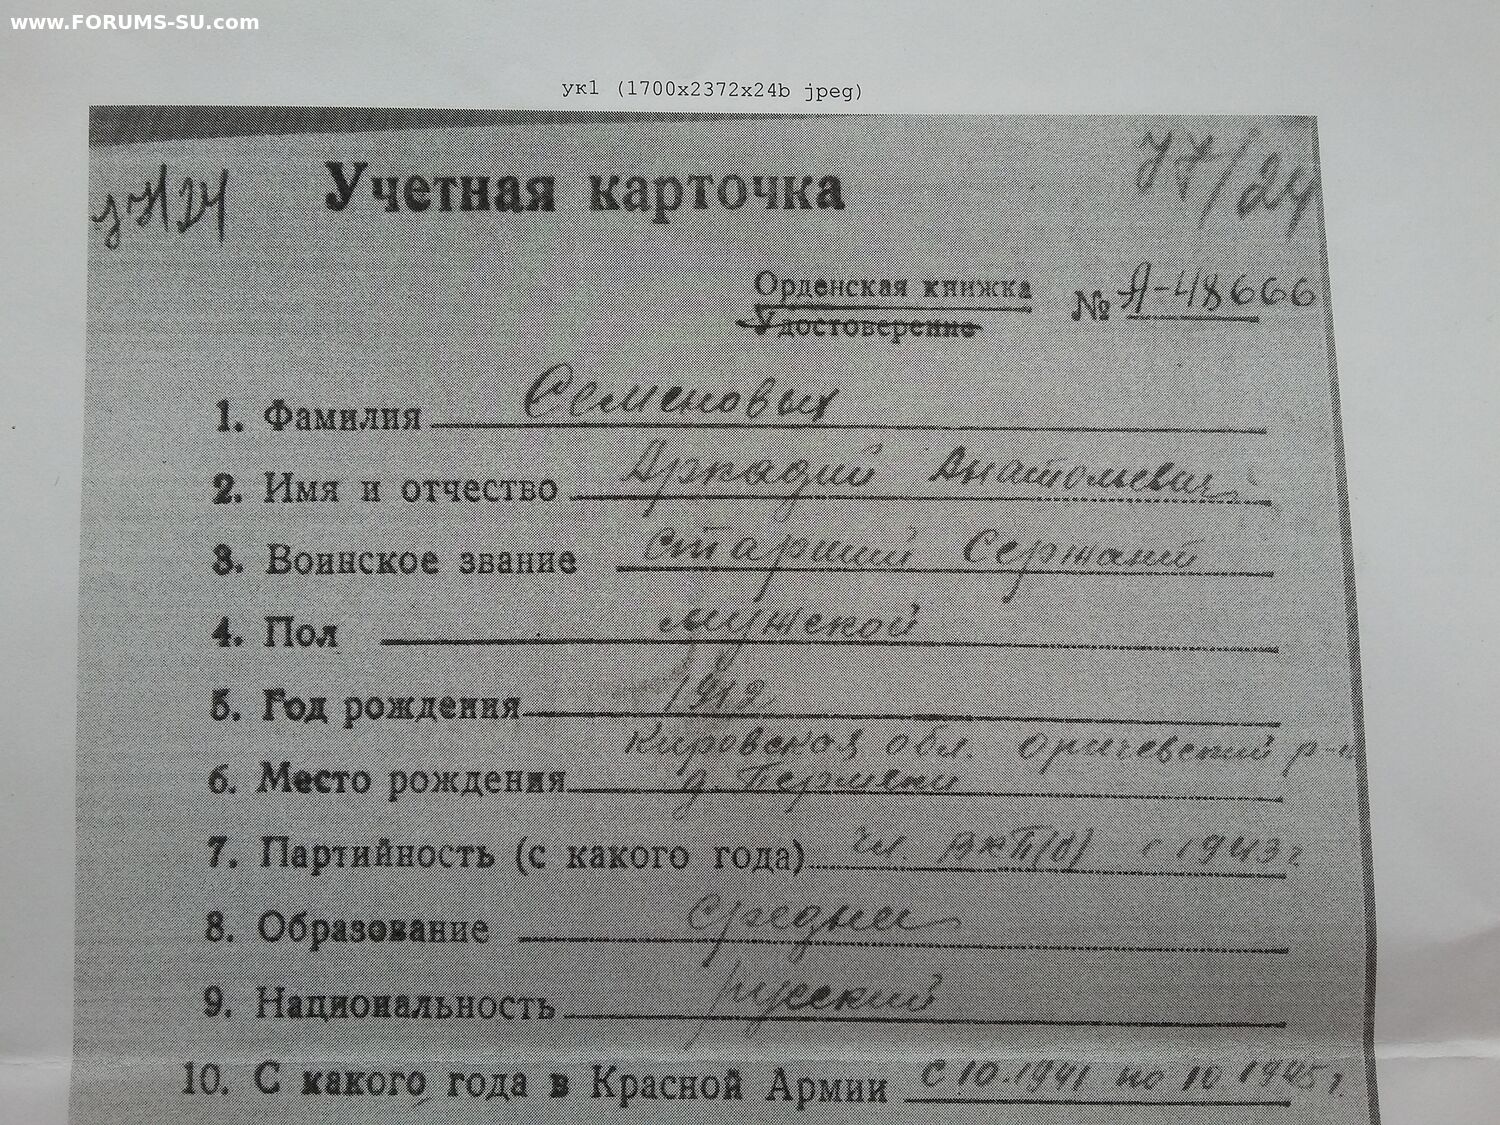 www.FORUMS-SU.com
ук1 (1700x2372x24b jpeg)
77/24
Учетная карточка
Орденская книжка
Удостоверение
№ А-48666
1. Фамилия Семеновых
2. Имя и отчество Аркадий Анатольевич
3. Воинское звание старший Сержант
4. Пол мужской
5. Год рождения
Кировская обл. Оричевский р-н
6. Место рождения д.
7. Партийность (с какого года) чл. ВКП(б) с 1943 г
8. Образование средне
9. Национальность русский
10. С какого года в Красной Армии с 10.1941 по 10 1945 г.